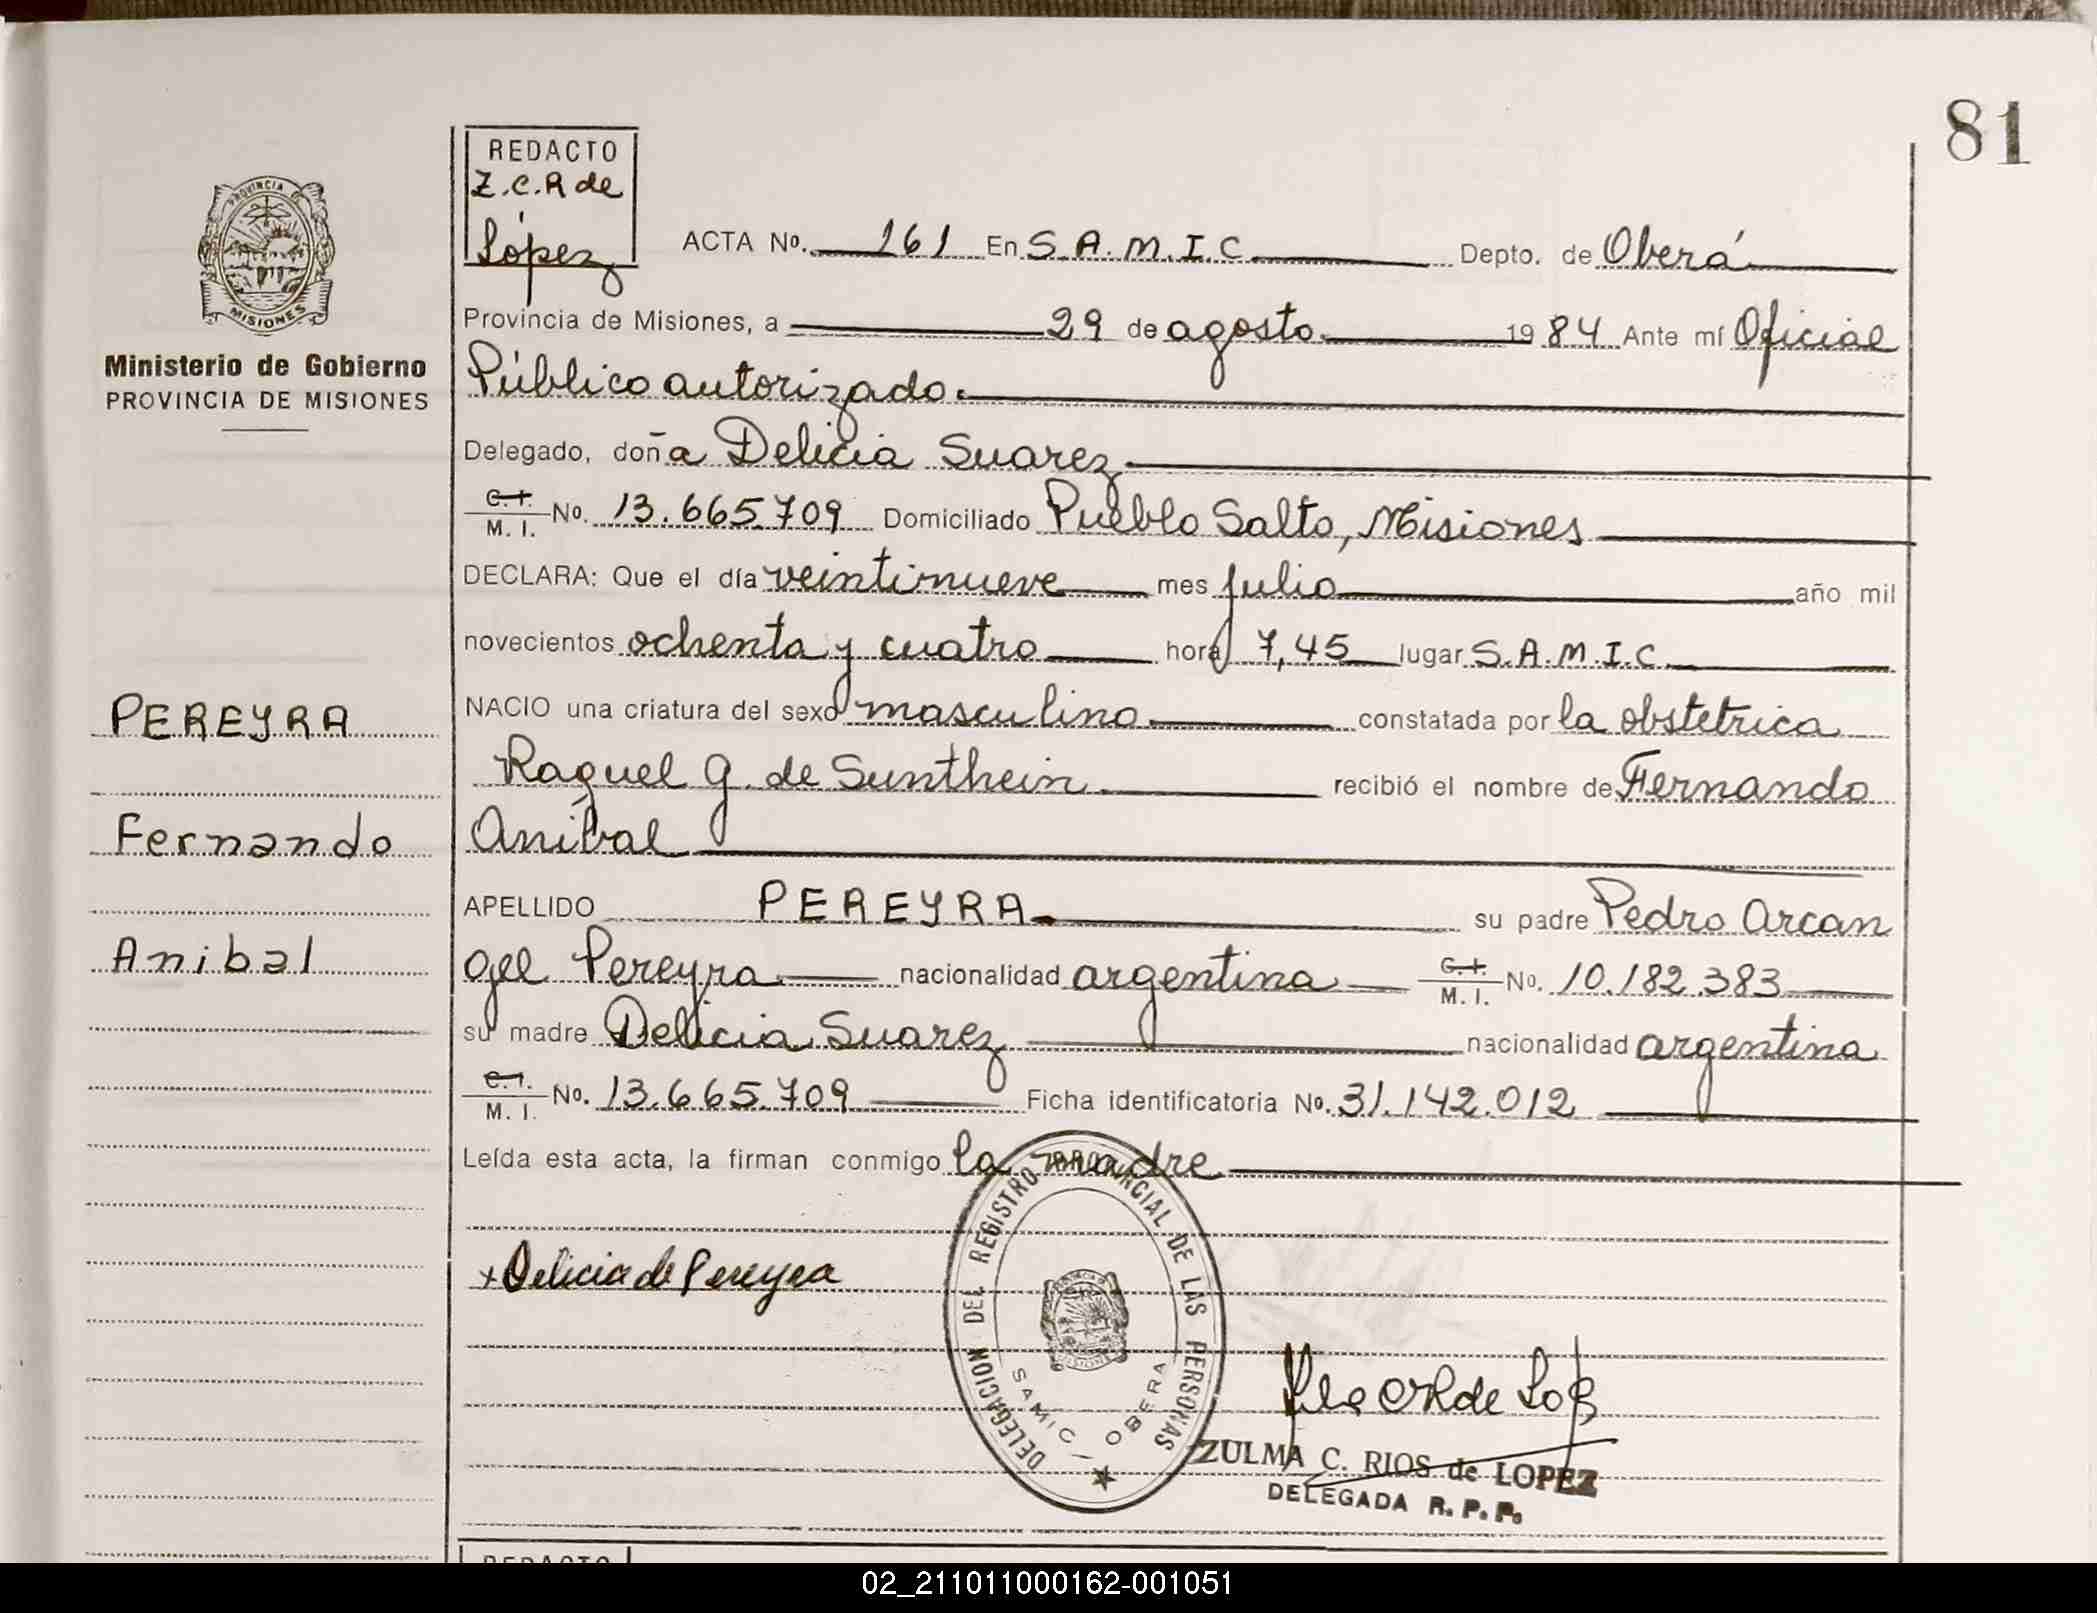 81
PROVINCIA DE
MISIONES
Ministerio de Gobierno
PROVINCIA DE MISIONES
REDACTO
Z.C.R de
López
ACTA No. 161 En S.A.M.I.C. Depto. de Oberá
Provincia de Misiones, a 29 de agosto 1984 Ante mí Oficial
Público autorizado.
Delegado, doña Delicia Suarez
C.I. M.I. No. 13.665.709 Domiciliado Pueblo Salto, Misiones
DECLARA: Que el día veintinueve mes julio año mil
novecientos ochenta y cuatro hora 7,45 lugar S.A.M.I.C.
NACIO una criatura del sexo masculino constatada por la obstetrica
Raquel G. de Sunthein recibió el nombre de Fernando
Aníbal
APELLIDO PEREYRA su padre Pedro Arcan
gel Pereyra nacionalidad argentina C.I. M.I. No. 10.182.383
su madre Delicia Suarez nacionalidad argentina
C.I. M.I. No. 13.665.709 Ficha identificatoria No. 31.142.012
Leída esta acta, la firman conmigo la madre
PEREYRA
Fernando
Anibal
+ Delicia de Pereyra
DELEGACION DEL REGISTRO PROVINCIAL DE LAS PERSONAS
SAMIC - OBERA
ZULMA C. RIOS de LOPEZ
DELEGADA R. P. P.
REDACTO
02_211011000162-001051